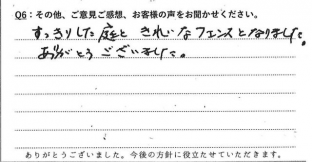 Q6：その他、ご意見ご感想、お客様の声をお聞かせください。
すっきりした庭と きれいなフェンスとなりました。
ありがとうございました。
ありがとうございました。今後の方針に役立たせていただきます。